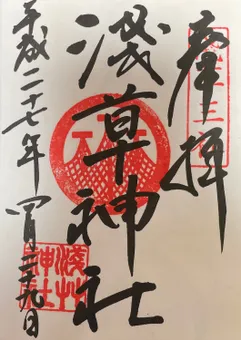 奉拝
淺草神社
平成二十七年四月二十九日
淺草
神社